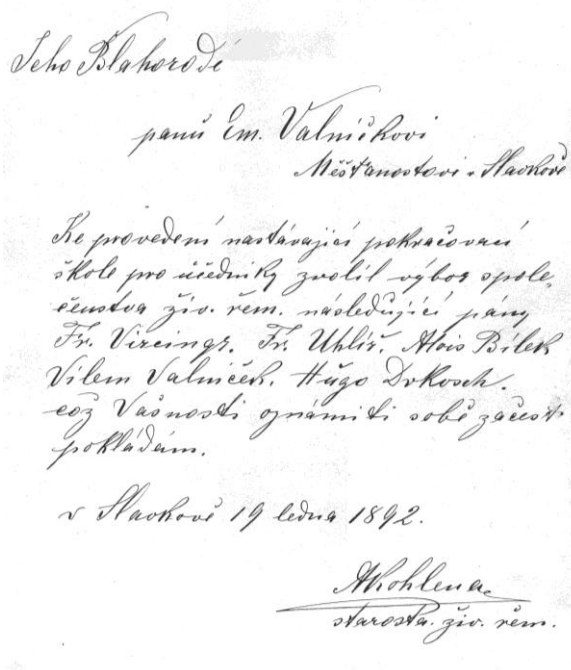 Jeho Blahorodí
panu Em. Valníčkovi
Měšťanostovi v Slavkově
Ke provedení nastávající pokračovací
škole pro učedníky zvolil výbor spole-
čenstva živ. řem. následující pány
Fr. Vircingr. Fr. Uhlíř. Alois Bílek
Vilem Valníček. Hugo Drkosch.
což Vašnosti oznámiti sobě za čest
pokládám.
v Slavkově 19 ledna 1892.
AKohlena
starosta. živ. řem.